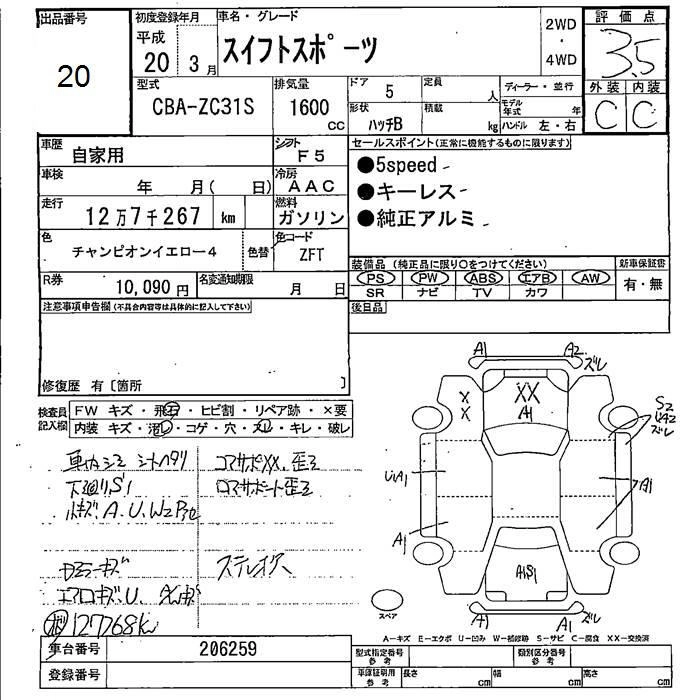 出品番号
20
初度登録年月
平成
20 3 月
車名・グレード
スイフトスポーツ
2WD
・
4WD
評価点
3.5
外装 内装
C C
型式
CBA-ZC31S
排気量
1600
CC
ドア 5
定員 人
形状 ハッチB
積載 kg
ディーラー・並行
モデル年式 年
ハンドル 左・右
車歴
自家用
シフト
F5
車検
年 月( 日)
冷房
AAC
走行
12万7千267 km
燃料
ガソリン
色
チャンピオンイエロー4
色替
色コード
ZFT
R券
10,090 円
名変通知期限
月 日
セールスポイント(正常に機能するものに限ります)
●5speed
●キーレス
●純正アルミ
装備品 (純正品に限り○をつけてください)
PS PW ABS エアB AW
SR ナビ TV カワ
新車保証書
有・無
後日品
注意事項申告欄(不具合内容等は具体的に記入して下さい)
修復歴 有〔箇所 〕
検査員記入欄
FW キズ・飛石・ヒビ割・リペア跡・×要
内装 キズ・汚レ・コゲ・穴・スレ・キレ・破レ
下廻りS1
127768km
A1 A2 ズレ
XX
A1
X
X
S2
ズレ
UA1
A1
A1
AS1
A1 A1 ズレ
スペア
A-キズ E-エクボ U-凹み W-補修跡 S-サビ C-腐食 XX-交換済
車台番号
206259
登録番号
型式指定番号
参考
類別区分番号
参考
車庫証明用
参考
長さ cm
幅 cm
高さ cm